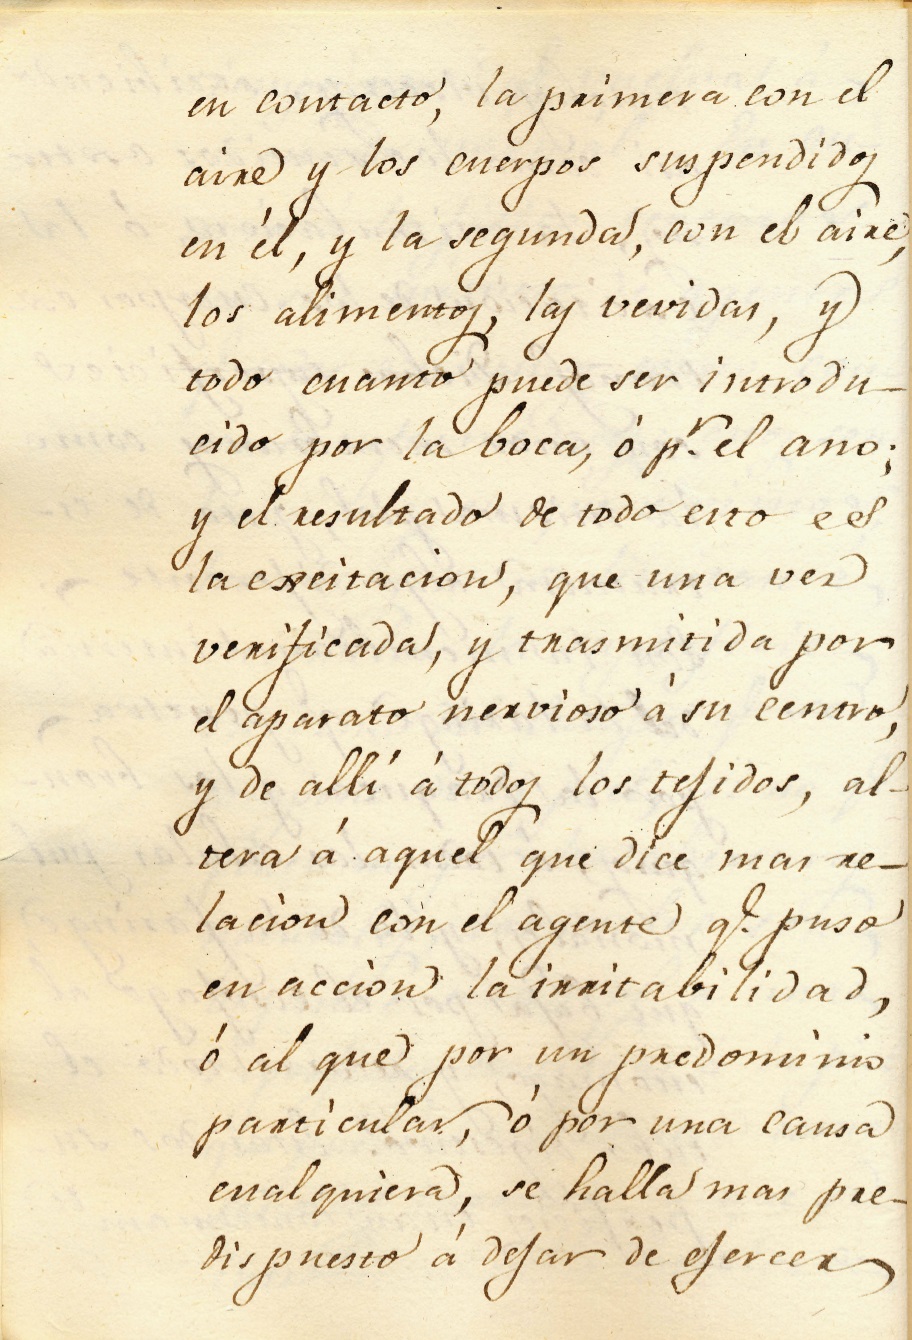 en contacto, la primera con el
aire y los cuerpos suspendidos
en él, y la segunda, con el aire,
los alimentos, las vevidas, y
todo cuanto puede ser introdu-
cido por la boca, ó pr. el ano;
y el resultado de todo esto es
la excitacion, que una ves
verificada, y trasmitida por
el aparato nervioso á su centro,
y de allí á todos los tejidos, al-
tera á aquel que dice mas re-
lacion con el agente q. puso
en accion la irritabilidad,
ó al que por un predominio
particular, ó por una causa
cualquiera, se halla mas pre-
dispuesto á dejar de ejercer